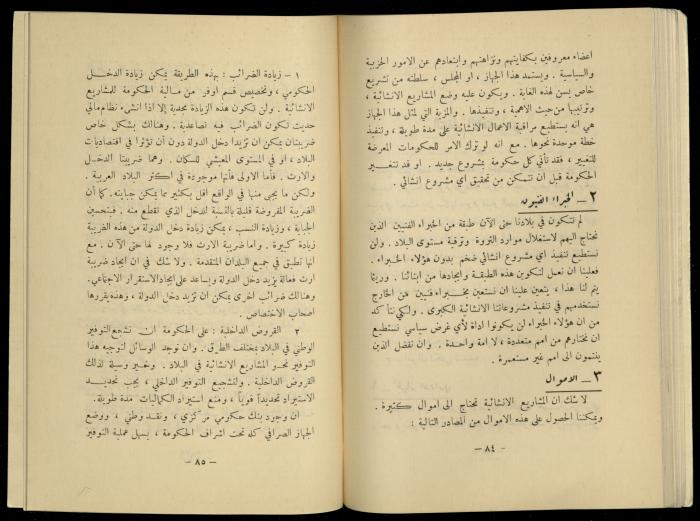 اعضاء معروفين بكفايتهم ونزاهتهم وابتعادهم عن الامور الحزبية
والسياسية . ويستمد هذا الجهاز ، او المجلس ، سلطته من تشريع
خاص يسن لهذه الغاية . ويكون عليه وضع المشاريع الانشائية ،
وترتيبها من حيث الاهمية ، وتنفيذها . والمزية التي لمثل هذا الجهاز
هي انه يستطيع مراقبة الاعمال الانشائية على مدة طويلة ، وتنفيذ
خطة موحدة نحوها . مع انه لو ترك الامر للحكومات المعرضة
للتغيير ، فقد تأتي كل حكومة بمشروع جديد . او قد تتغير
الحكومة قبل ان تتمكن من تحقيق أي مشروع انشائي .
٢ – الخبراء الفنيون
لم تتكون في بلادنا حتى الآن طبقة من الخبراء الفنيين الذين
نحتاج اليهم لاستغلال موارد الثروة وترقية مستوى البلاد . ولن
نستطيع تنفيذ اي مشروع انشائي ضخم بدون هؤلاء الخبراء .
فعلينا ان نعمل لتكوين هذه الطبقة وايجادها من ابنائنا . وريثما
يتم لنا هذا ، يتعين علينا ان نستعين بخبراء فنيين من الخارج
نستخدمهم في تنفيذ مشروعاتنا الانشائية الكبرى . ولكي نتأكد
من ان هؤلاء الخبراء لن يكونوا اداة لأي غرض سياسي نستطيع
ان نختارهم من امم متعددة ، لا امة واحدة . وان نفضل الذين
ينتمون الى امم غير مستعمرة .
٣ – الاموال
لا شك ان المشاريع الانشائية تحتاج الى اموال كثيرة .
ويمكننا الحصول على هذه الاموال من المصادر التالية :
– ٨٤ –
١ – زيادة الضرائب : بهذه الطريقة يمكن زيادة الدخل
الحكومي ، وتخصيص قسم اوفر من مالية الحكومة للمشاريع
الانشائية . ولن تكون هذه الزيادة مجدية إلا اذا انشىء نظام مالي
حديث تكون الضرائب فيه تصاعدية . وهنالك بشكل خاص
ضريبتان يمكن ان تزيدا دخل الدولة دون أن تؤثرا في اقتصاديات
البلاد ، او في المستوى المعيشي للسكان . وهما ضريبتا الدخل
والارث . فأما الاولى فأنها موجودة في اكثر البلاد العربية .
ولكن ما يجبى منها في الواقع اقل بكثير مما يمكن جبايته . كما أن
الضريبة المفروضة قليلة بالنسبة للدخل الذي تقطع منه . فبتحسين
الجباية ، وزيادة النسب ، يمكن زيادة دخل الدولة من هذه الضريبة
زيادة كبيرة . واما ضريبة الارث فلا وجود لها حتى الآن . مع
انها تطبق في جميع البلدان المتقدمة . ولا شك في ان ايجاد ضريبة
ارث فعالة يزيد دخل الدولة ويساعد على ايجاد الاستقرار الاجتماعي .
وهنالك ضرائب اخرى يمكن ان تزيد دخل الدولة ، وهذه يقررها
اصحاب الاختصاص .
٢ – القروض الداخلية : على الحكومة ان تشجع التوفير
الوطني في البلاد بمختلف الطرق . وان توجد الوسائل لتوجيه هذا
التوفير نحو المشاريع الانشائية في البلاد . وخير وسيلة لذلك
القروض الداخلية . ولتشجيع التوفير الداخلي ، يجب تحديد
الاستيراد تحديداً قوياً ، ومنع استيراد الكماليات مدة طويلة .
ان وجود بنك حكومي مركزي ، ونقد وطني ، ووضع
الجهاز الصرافي كله تحت اشراف الحكومة ، يسهل عملية التوفير
– ٨٥ –